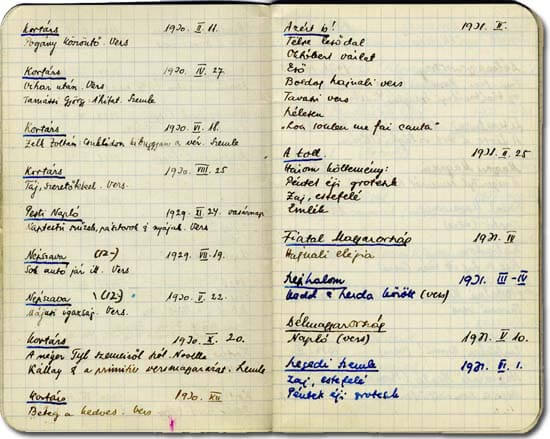 Kortárs 1930. II. 11.
Pogány köszöntő. Vers
Kortárs 1930. IV. 27.
Vihar után. Vers
Tamássi György: Ahitat. Szemle
Kortárs 1930. VI. 18.
Zelk Zoltán: Csuklódon kibuggyan a vér. Szemle
Kortárs 1930. VIII. 25
Táj, szeretőkkel. Vers.
Pesti Napló 1929. XI. 24. vasárnap
Kapteștü, pásztorok s nyájuk. Vers
Népszava (12-) 1929. VII. 19.
Sok autó jár itt. Vers
Népszava (12-) 1930. V. 22.
Májusi igazság. Vers.
Kortárs 1930. X. 20.
A néger Tyll szemeiről szól. Novella
Kállay s a primitív versmagyarázat. Szemle
Kortárs 1930. XII.
Beteg a kedves. Vers
Azért is! 1931. II.
Télre leső dal
Októberi vázlat
Eső
Boldog, hajnali vers
Tavaszi vers
Meleten
"Lou souleu me fai canta"
A toll. 1931. II. 25
Három költemény:
Péntek éji groteszk
Zaj, estefelé
Emlék
Fiatal Magyarország 1931. IV
Hajnali elégia
Rejhalom 1931. III-IV
Kedd s herda között (vers)
Délmagyarország
Napló (vers) 1931. V. 10.
Szegedi Szemle 1931. VI. 1.
Zaj, estefelé
Péntek éji groteszk